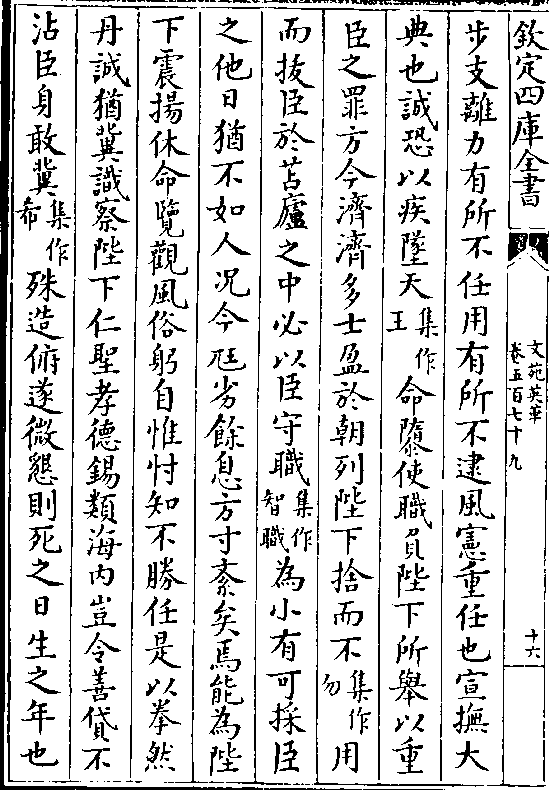 欽定四庫全書
文苑英華
卷五百七十九
十六
步支離力有所不任用有所不逮風憲重任也宣撫大
典也誠恐以疾墜天集作王命隳使職負陛下所舉以重
臣之罪方今濟濟多士盈於朝列陛下捨而不集作勿用
而拔臣於苫廬之中必以臣守職集作智職為小有可採臣
之他日猶不如人况今尫劣餘息方寸紊矣焉能為陛
下震揚休命覽觀風俗躬自惟忖知不勝任是以拳然
丹誠猶冀識察陛下仁聖孝德錫類海内豈令善貸不
沾臣身敢冀集作希殊造俯遂微懇則死之日生之年也